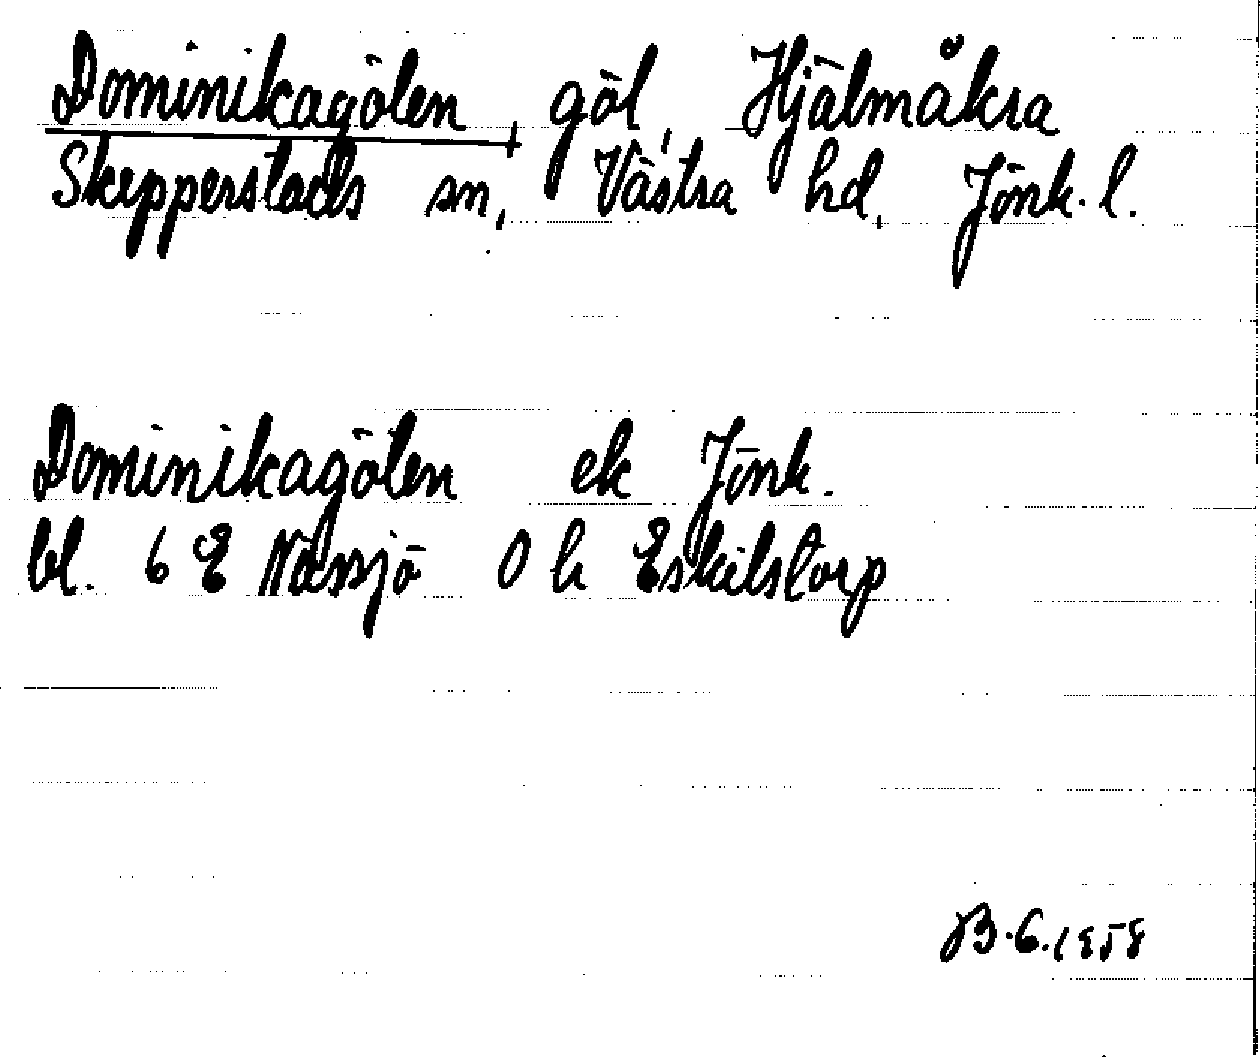 Dominikagölen, göl, Hjälmåkra
Skepperstads sn, Västra hd, Jönk. l.
Dominikagölen ek Jönk.
bl. 6 E Nässjö O h Eskilstorp
JB. 6. 1958